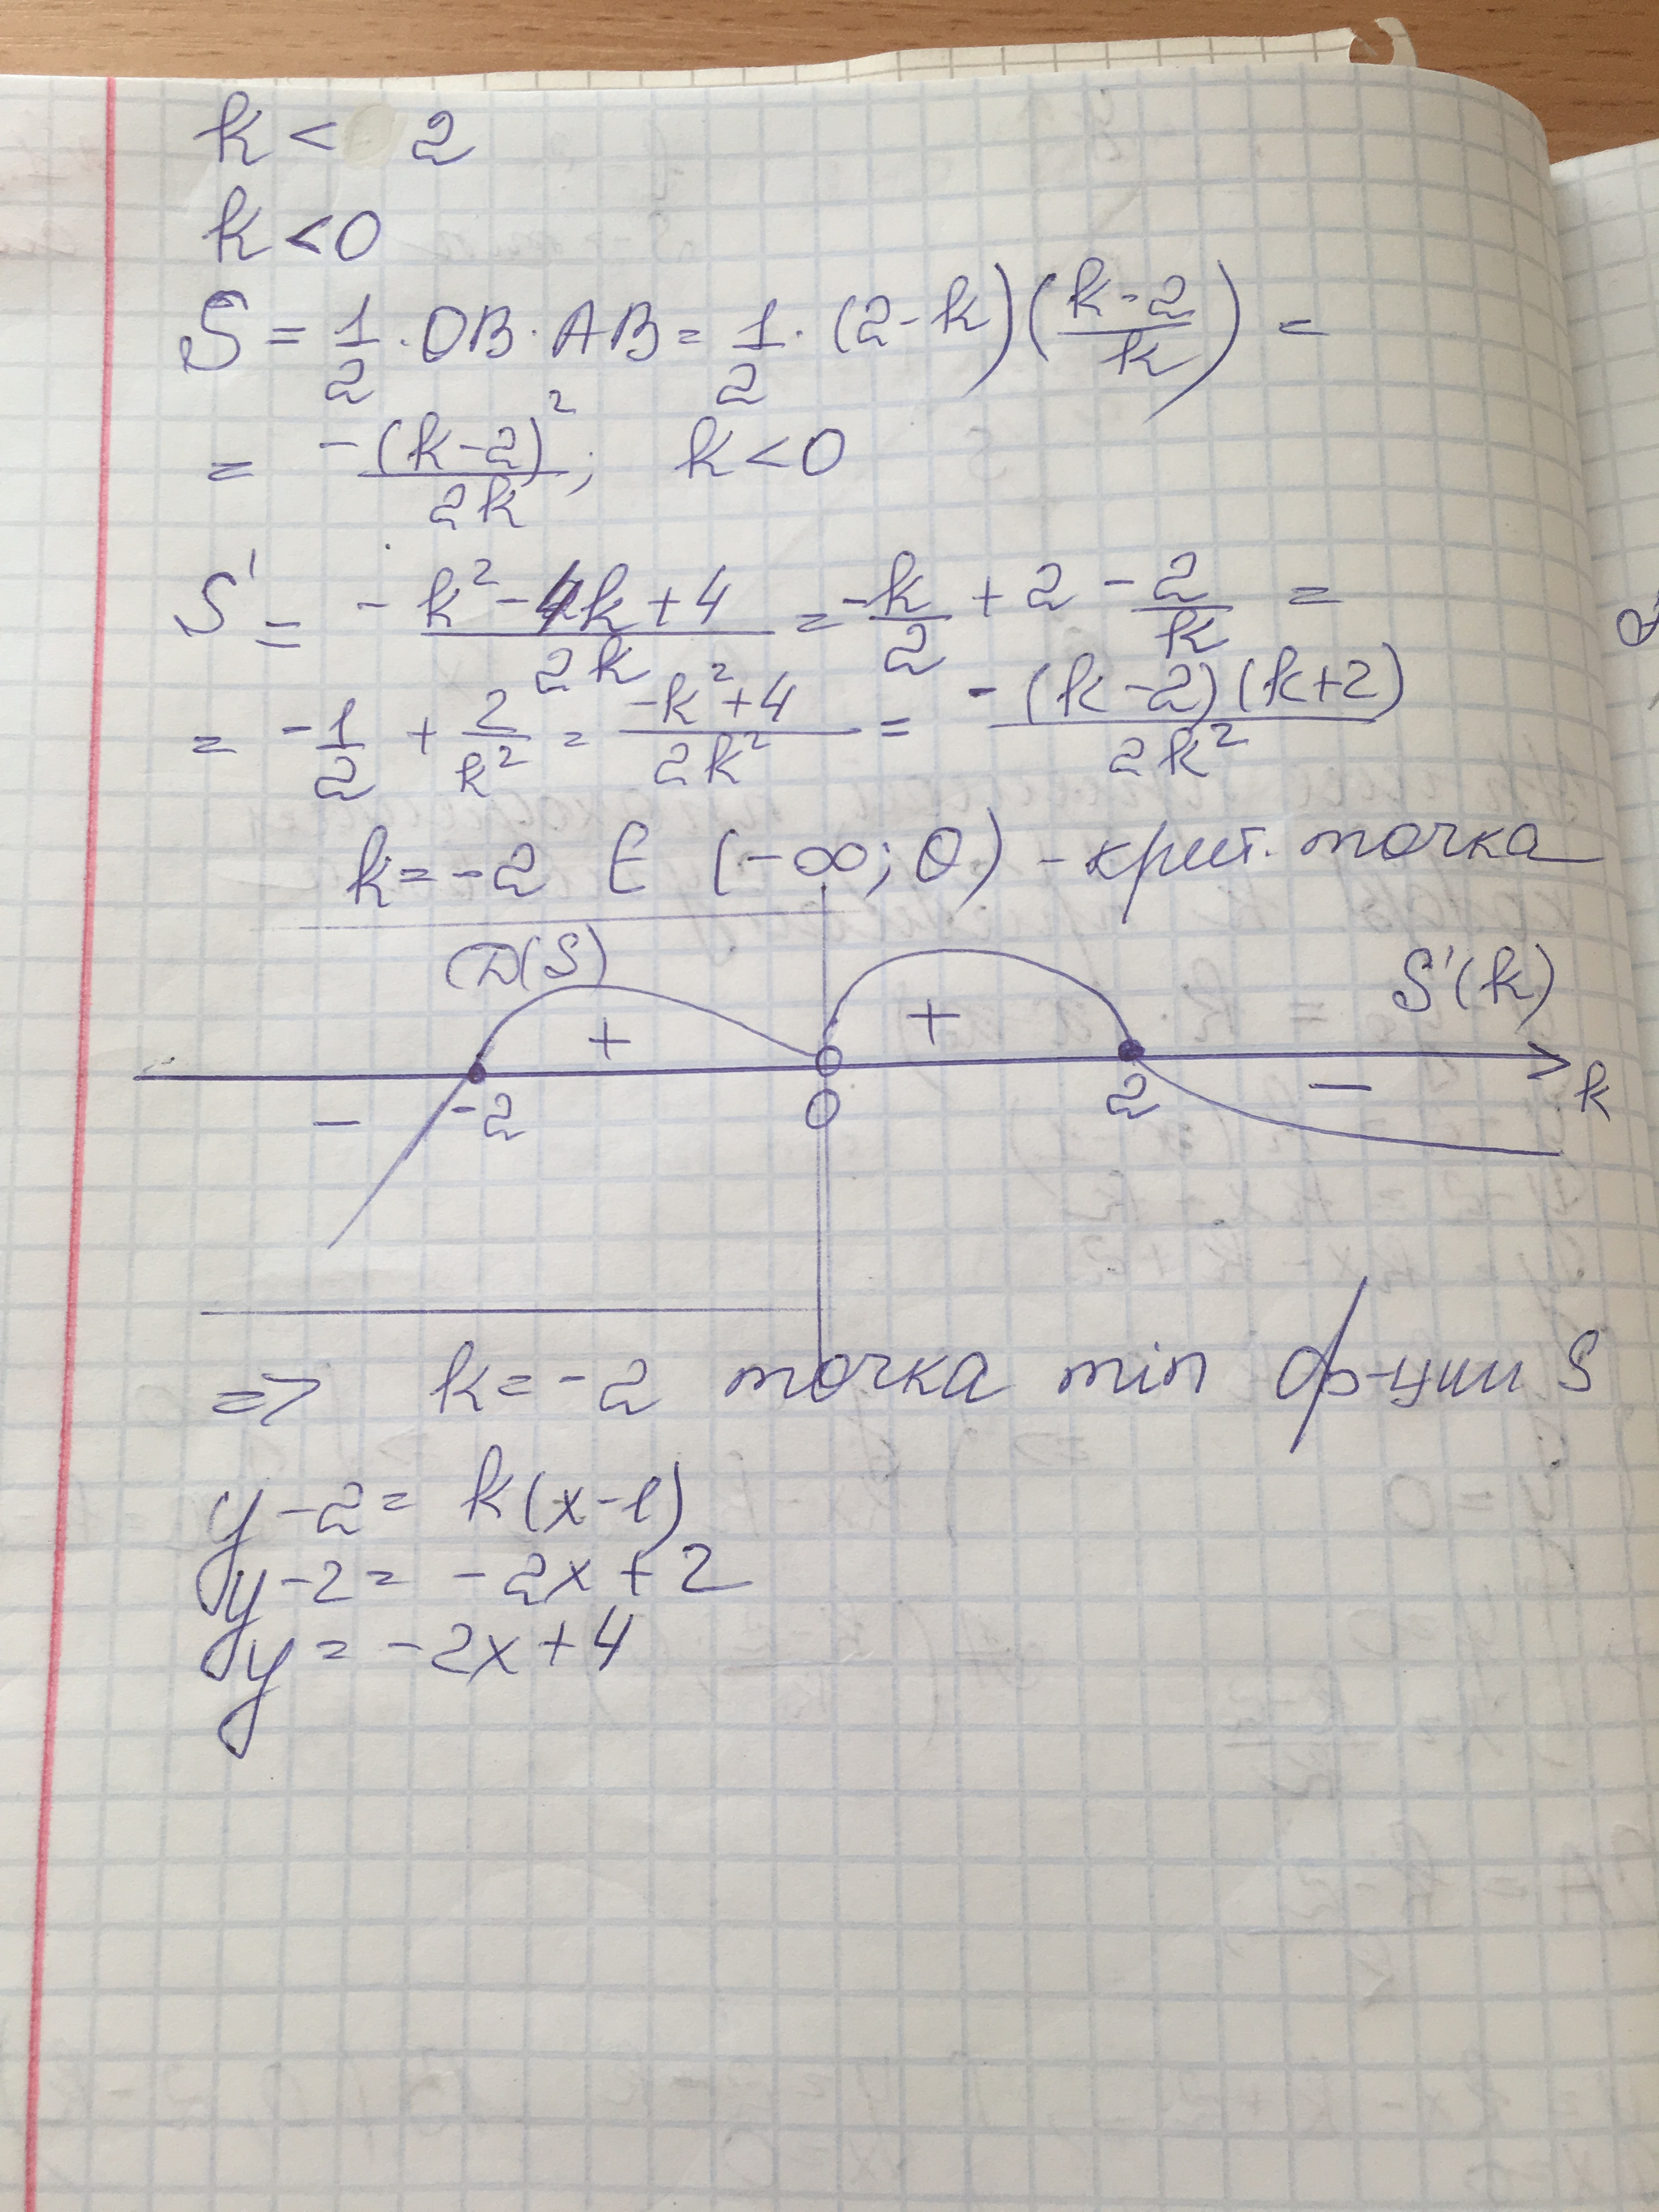 k < 2
k < 0
S = 1/2 · OB · AB = 1/2 · (2 - k) ((k - 2)/k) =
= -(k - 2)²/2k ; k < 0
S' = - (k² - 4k + 4)/2k = -k/2 + 2 - 2/k =
= -1/2 + 2/k² = (-k² + 4)/2k² = -(k - 2)(k + 2)/2k²
k = -2 ∈ (-∞; 0) - крит. точка
D(S)
S'(k)
+ +
- -2 0 2 - k
=> k = -2 точка min ф-ции S
y - 2 = k(x - 1)
y - 2 = -2x + 2
y = -2x + 4